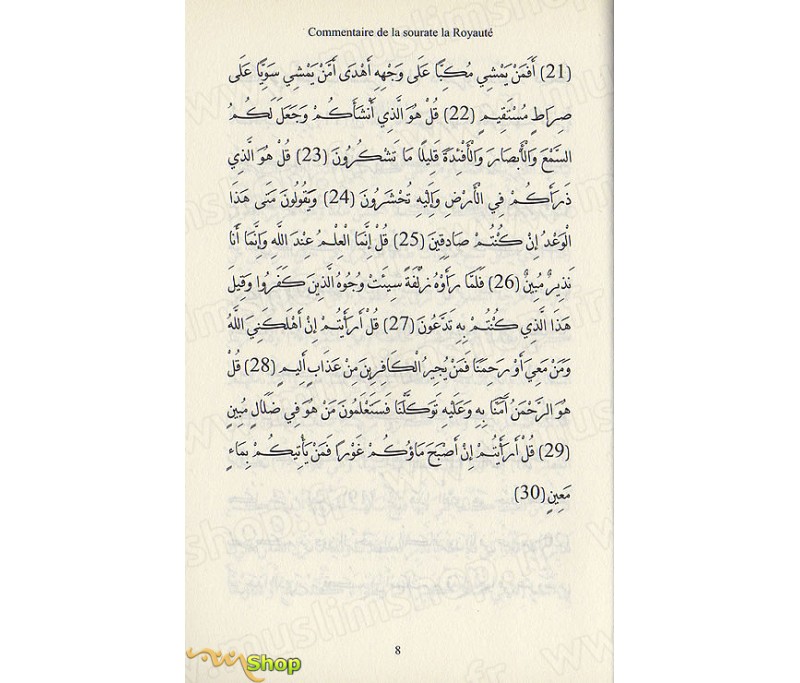 Commentaire de la sourate la Royauté
(21) أَفَمَنْ يَمْشِي مُكِبًّا عَلَى وَجْهِهِ أَهْدَى أَمَّنْ يَمْشِي سَوِيًّا عَلَى
صِرَاطٍ مُسْتَقِيمٍ (22) قُلْ هُوَ الَّذِي أَنْشَأَكُمْ وَجَعَلَ لَكُمُ
السَّمْعَ وَالْأَبْصَارَ وَالْأَفْئِدَةَ قَلِيلًا مَا تَشْكُرُونَ (23) قُلْ هُوَ الَّذِي
ذَرَأَكُمْ فِي الْأَرْضِ وَإِلَيْهِ تُحْشَرُونَ (24) وَيَقُولُونَ مَتَى هَذَا
الْوَعْدُ إِنْ كُنْتُمْ صَادِقِينَ (25) قُلْ إِنَّمَا الْعِلْمُ عِنْدَ اللَّهِ وَإِنَّمَا أَنَا
نَذِيرٌ مُبِينٌ (26) فَلَمَّا رَأَوْهُ زُلْفَةً سِيئَتْ وُجُوهُ الَّذِينَ كَفَرُوا وَقِيلَ
هَذَا الَّذِي كُنْتُمْ بِهِ تَدَّعُونَ (27) قُلْ أَرَأَيْتُمْ إِنْ أَهْلَكَنِيَ اللَّهُ
وَمَنْ مَعِيَ أَوْ رَحِمَنَا فَمَنْ يُجِيرُ الْكَافِرِينَ مِنْ عَذَابٍ أَلِيمٍ (28) قُلْ
هُوَ الرَّحْمَنُ آَمَنَّا بِهِ وَعَلَيْهِ تَوَكَّلْنَا فَسَتَعْلَمُونَ مَنْ هُوَ فِي ضَلَالٍ مُبِينٍ
(29) قُلْ أَرَأَيْتُمْ إِنْ أَصْبَحَ مَاؤُكُمْ غَوْرًا فَمَنْ يَأْتِيكُمْ بِمَاءٍ
مَعِينٍ (30)
8
Shop